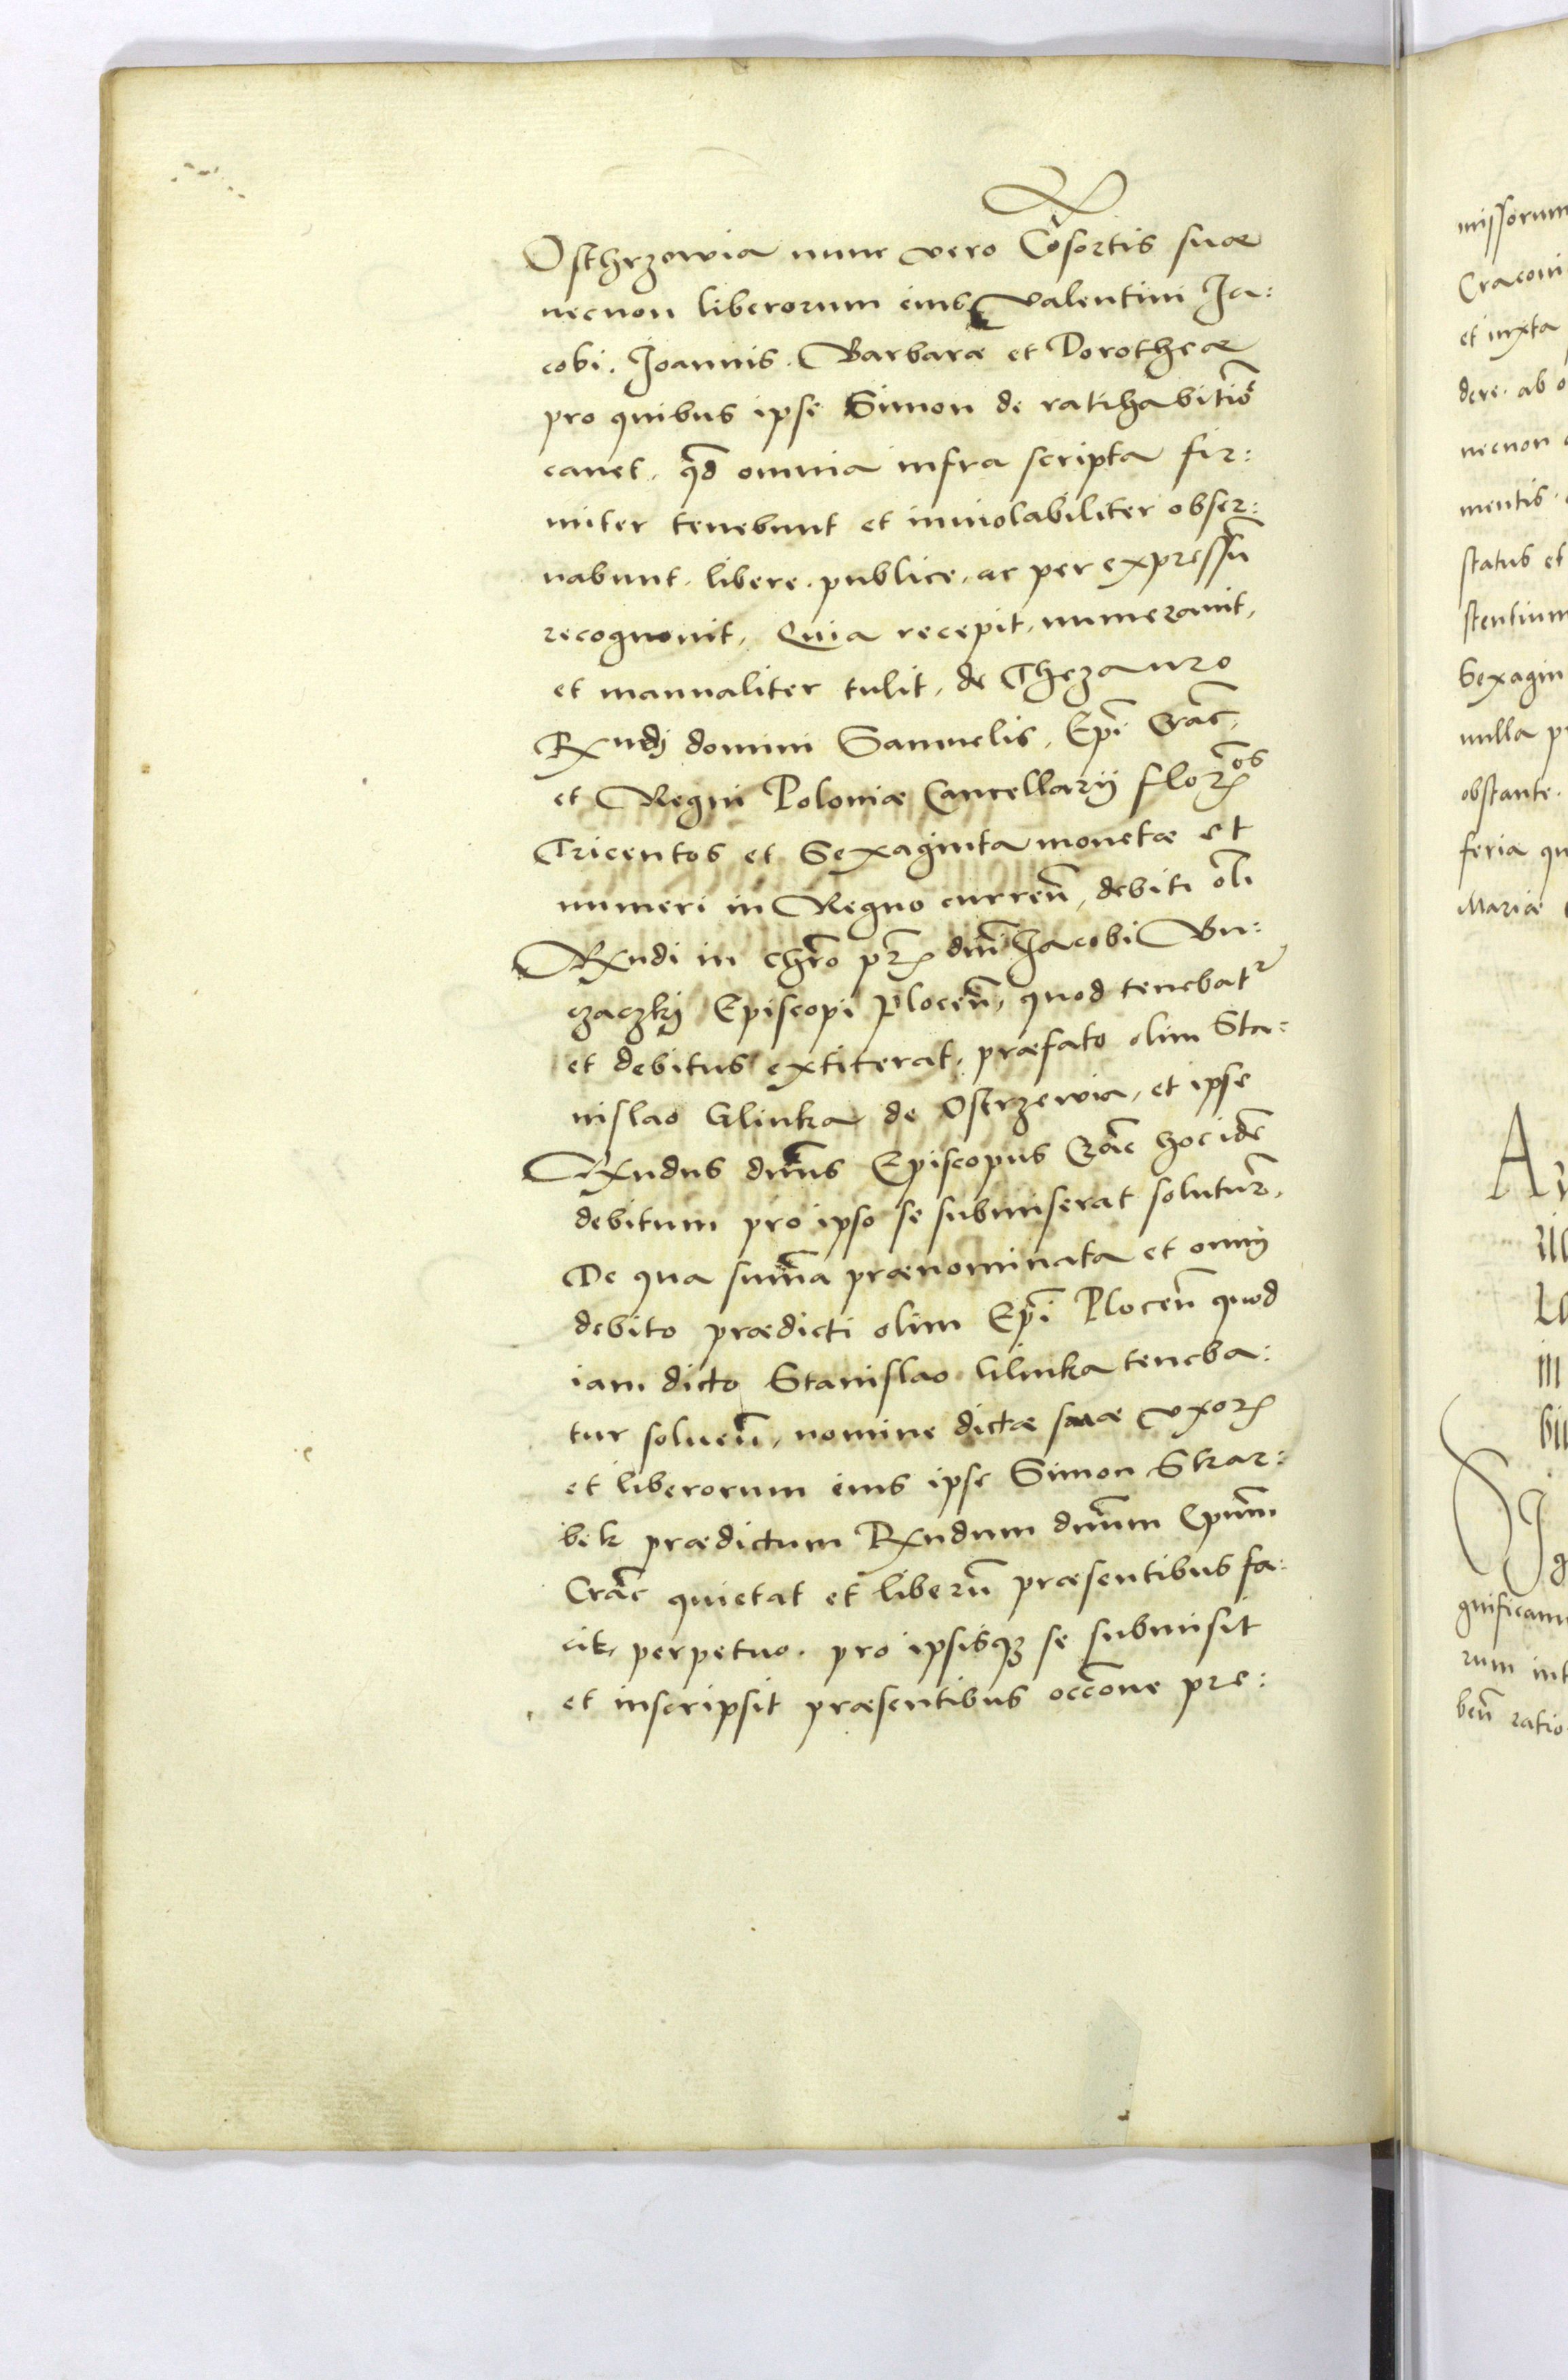 Osthrzowia nunc vero Cōsortis suæ
necnon liberorum eius Valentini Ja:
cobi. Joannis. Barbaræ et Dorotheæ
pro quibus ipse Simon de ratihabitiōe
cauet, qđ omnia infra scripta fir:
miter tenebunt et inuiolabiliter obser:
uabunt. libere. publice, ac per expressū
recognouit, Quia recepit, numerauit,
et manualiter tulit, de Thezauro
Rxndj domini Samuelis, Epī Crāc,
et Regni Poloniæ Cancellarij florenos
Tricentos et Sexaginta monetæ et
numeri in Regno curreñ, debiti olī
Rxndi in chr̄o pr̄s dn̄i Jacobi Bu:
czaczkj Episcopi Ploceñ, quod tenebatr
et debitus extiterat, præfato olim Sta:
nislao Glinka de Ostrzewia, et ipse
Rxndus dn̄us Episcopus Crāc hoc idē
debitum pro ipso se submiserat soluturū,
De qua sum̄a prænominata et omnj
debito prædicti olim Epī Ploceñ quod
iam dicto Stanislao Glinka teneba:
tur solueñ, nomine dictæ suæ vxoris
et liberorum eius ipse Simon Skar:
bek prædictum Rxndum dn̄um Epūm
Crāc quietat et liberū præsentibus fa:
cit, perpetuo. pro ipsisqꝫ se submisit
et inscripsit præsentibus occ̄one pre:
missorum
Cracoui
et iuxta
dere. ab o
necnon
mentis.
status et
stentium
Sexagin
nulla p
obstante.
feria qu
Mariæ
gnificam
rum int
beñ ratio